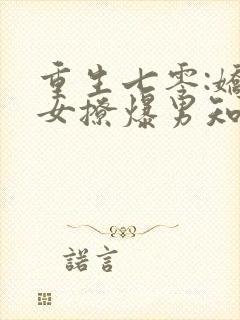 重生七零:嬌
女撩爆男知
諾言